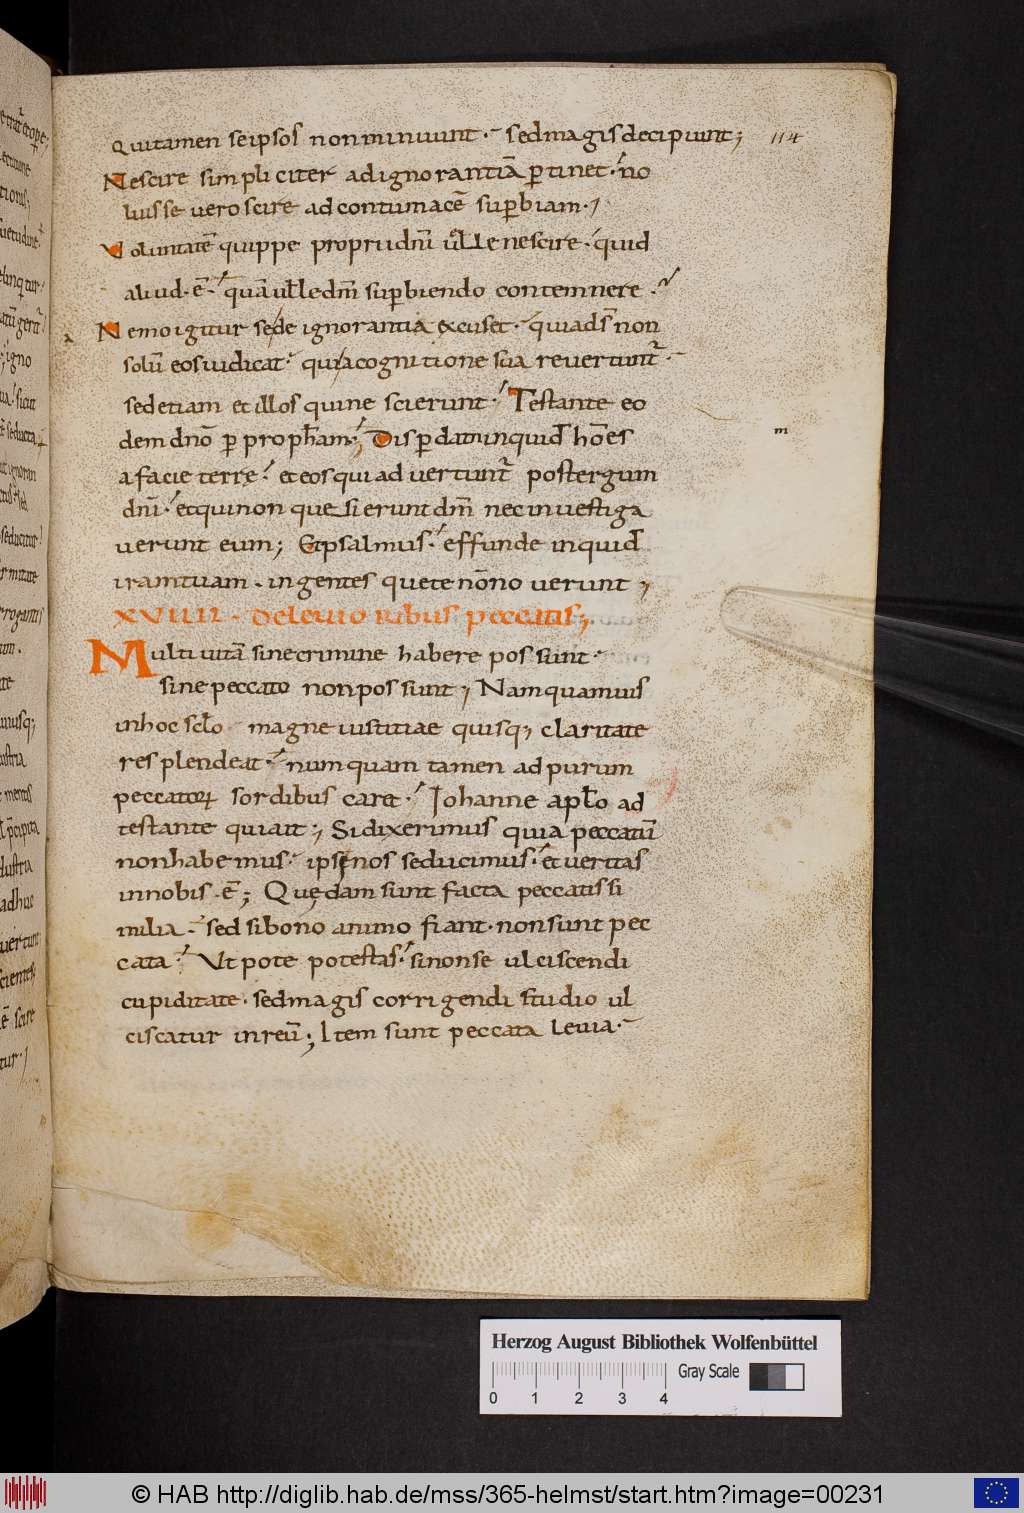 Qui tamen se ipsos non minuunt. sed magis decipiunt; 114
Nescire simpliciter ad ignorantiā ꝑtinet. no
luisse vero scire ad contumacē suꝑbiam.
Voluntatē quippe proprii dn̄i uelle nescire. quid
aliud. ē. quā uelle dm̄ suꝑbiendo contemnere.
Nemo igitur se de ignorantia excuset. quia ds̄ non
solū eos iudicat. qui a cognitione sua revertunt᷑.
sed etiam et illos qui nescierunt. Testante eo
dem dn̄o ꝑ proph̄am; Disꝑdam inquid hōes m
a facie terrę. et eos qui advertunt᷑ post ergum
dn̄i. et qui non quesierunt dm̄ nec investiga
verunt eum; Et psalmus. effunde inquid
iram tuam. in gentes que te non noverunt;
XVIIII. De levioribus peccatis;
Multi vitā sine crimine habere possunt.
sine peccato non possunt; Nam quamvis
in hoc sc̄lo magne iustitiae quisq; claritate
resplendeat. numquam tamen ad purum
peccatoꝝ sordibus caret. Iohanne apl̄o ad
testante qui ait; Si dixerimus quia peccatū
non habemus. ipsi nos seducimus. et veritas
in nobis. ē; Quędam sunt facta peccatis si
milia. sed si bono animo fiant. non sunt pec
cata. Ut pote potestas. si non se ulciscendi
cupiditate. sed magis corrigendi studio ul
ciscatur in reū; Item sunt peccata levia.
Herzog August Bibliothek Wolfenbüttel
Gray Scale
0 1 2 3 4
© HAB http://diglib.hab.de/mss/365-helmst/start.htm?image=00231